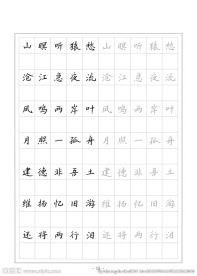 山暝听猿愁 山暝听猿愁
沧江急夜流 沧江急夜流
风鸣两岸叶 风鸣两岸叶
月照一孤舟 月照一孤舟
建德非吾土 建德非吾土
维扬忆旧游 维扬忆旧游
还将两行泪 还将两行泪